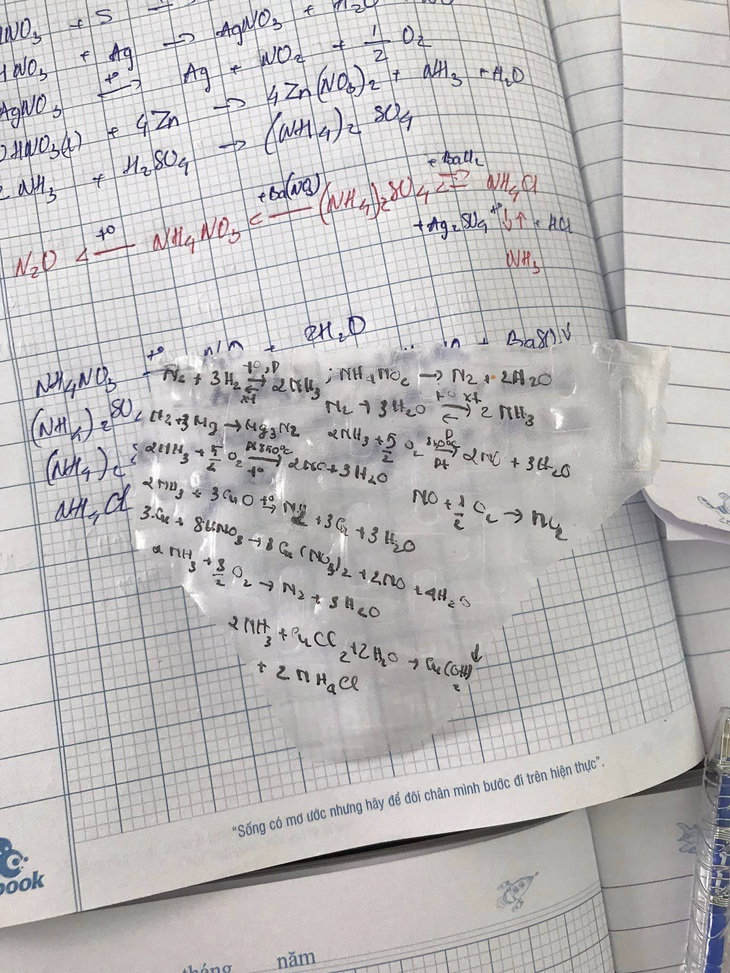 HNO₃ + S
HNO₃ + Ag → AgNO₃ + H₂O
AgNO₃ t°→ Ag + NO₂ + 1/2 O₂
HNO₃(l) + 4Zn → 4Zn(NO₃)₂ + NH₃ + H₂O
2NH₃ + H₂SO₄ → (NH₄)₂SO₄
N₂O <—t°— NH₄NO₃ <—+Ba(NO₃)— (NH₄)₂SO₄ +BaCl₂ ⇌ NH₄Cl
+Ag₂SO₄ t° ↓↑ + HCl
NH₃
NH₄NO₃ t° + 2H₂O
(NH₄)₂SO₄ + BaSO₄↓
(NH₄)₂
NH₄Cl
N₂ + 3H₂ t°,P ⇌ xt 2NH₃ ; NH₄NO₂ → N₂ + 2H₂O
N₂ + 3H₂O t° xt ⇌ 2NH₃
N₂ + 3Mg → Mg₃N₂ 2NH₃ + 5/2 O₂ P Pt → 2NO + 3H₂O
2NH₃ + 5/2 O₂ Pt 850°C t° → 2NO + 3H₂O
2NH₃ + 3CuO t°→ N₂ + 3Cu + 3H₂O NO + 1/2 O₂ → NO₂
3Cu + 8HNO₃ → 3Cu(NO₃)₂ + 2NO + 4H₂O
2NH₃ + 3/2 O₂ → N₂ + 3H₂O
2NH₃ + CuCl₂ + 2H₂O → Cu(OH)₂↓
+ 2NH₄Cl
"Sống có mơ ước nhưng hãy để đôi chân mình bước đi trên hiện thực".
book
tháng năm